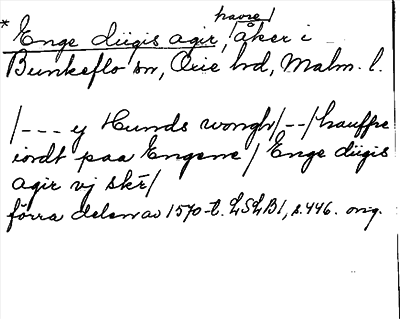 havre/
* Enge diigis agir, åker i
Bunkeflo sn, Oxie hd, Malm. l.
/--- y Hunds wongh/--/hauffre
iordt paa Engene/ Enge diigis
agir vj skr̄/
förra delen av 1570-t. LSLB1, s. 446. orig.